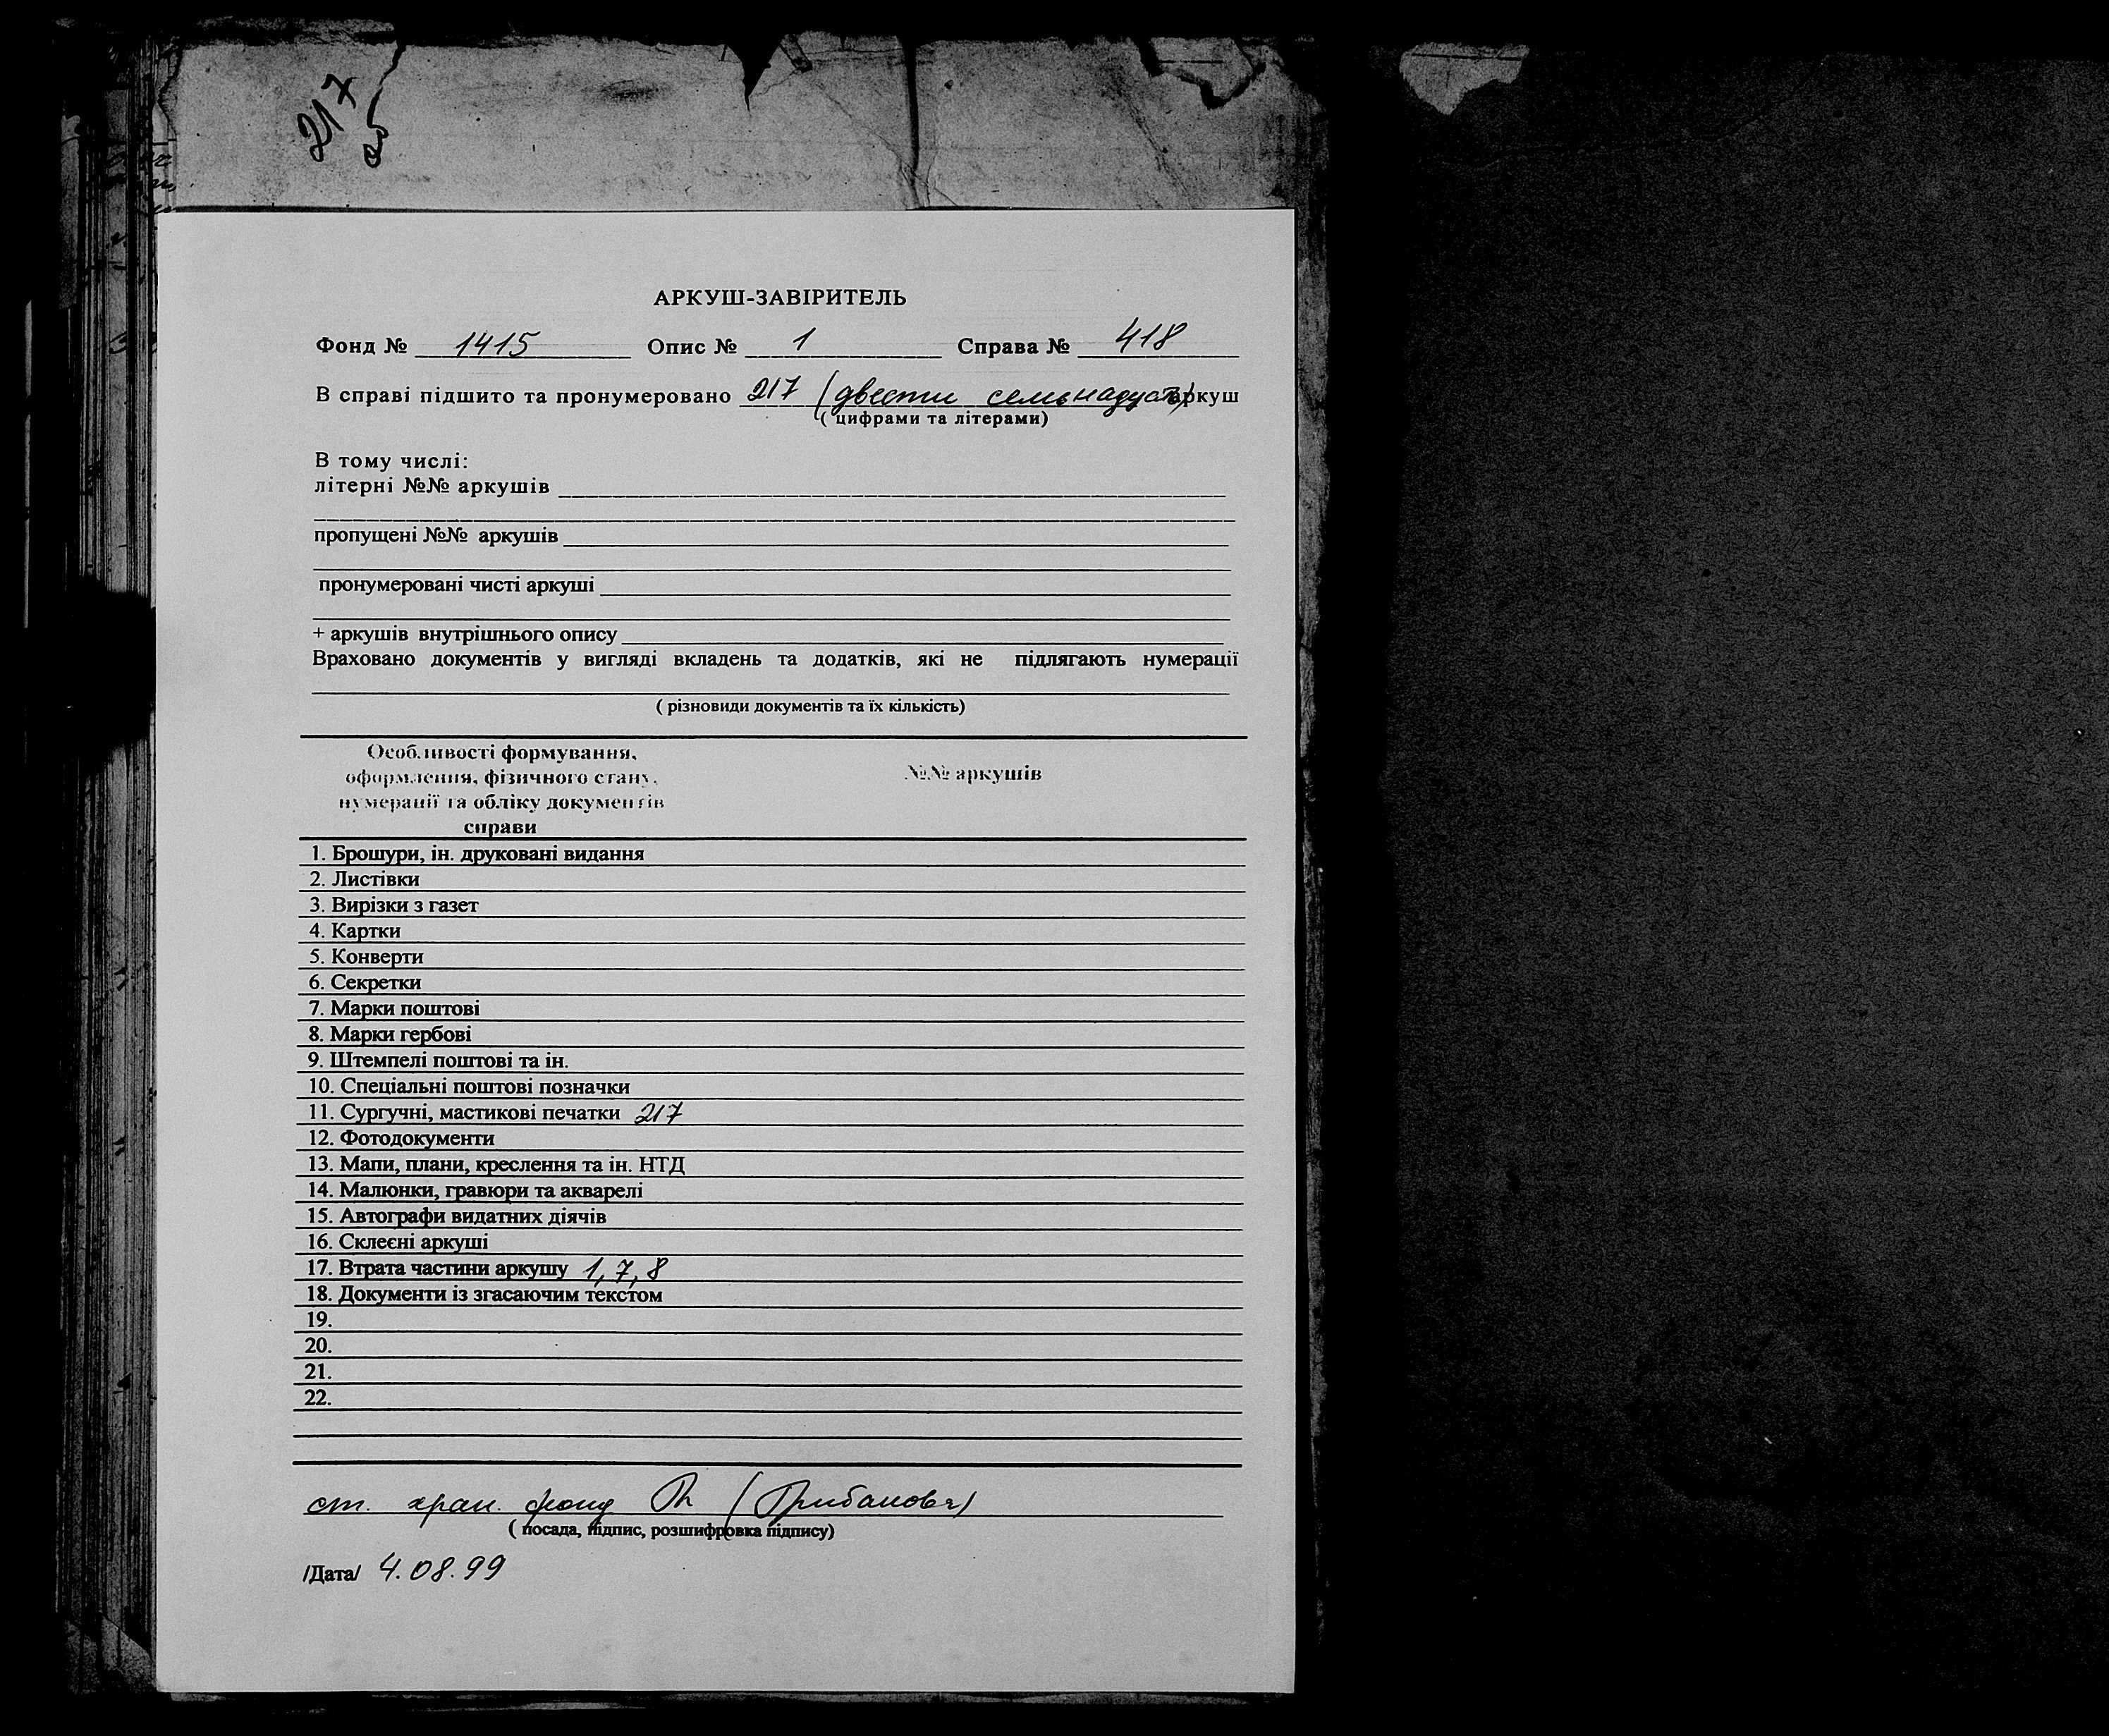 217
АРКУШ-ЗАВІРИТЕЛЬ
Фонд № 1415 Опис № 1 Справа № 418
В справі підшито та пронумеровано 217 (двести семьнадцать) аркуш
( цифрами та літерами)
В тому числі:
літерні №№ аркушів
пропущені №№ аркушів
пронумеровані чисті аркуші
+ аркушів внутрішнього опису
Враховано документів у вигляді вкладень та додатків, які не підлягають нумерації
( різновиди документів та їх кількість)
Особливості формування,
оформлення, фізичного стану, №№ аркушів
нумерації та обліку документів
справи
1. Брошури, ін. друковані видання
2. Листівки
3. Вирізки з газет
4. Картки
5. Конверти
6. Секретки
7. Марки поштові
8. Марки гербові
9. Штемпелі поштові та ін.
10. Спеціальні поштові позначки
11. Сургучні, мастикові печатки 217
12. Фотодокументи
13. Мапи, плани, креслення та ін. НТД
14. Малюнки, гравюри та акварелі
15. Автографи видатних діячів
16. Склеєні аркуші
17. Втрата частини аркушу 1, 7, 8
18. Документи із згасаючим текстом
19.
20.
21.
22.
ст. хран. фонд (Грибанова)
( посада, підпис, розшифровка підпису)
/Дата/ 4.08.99